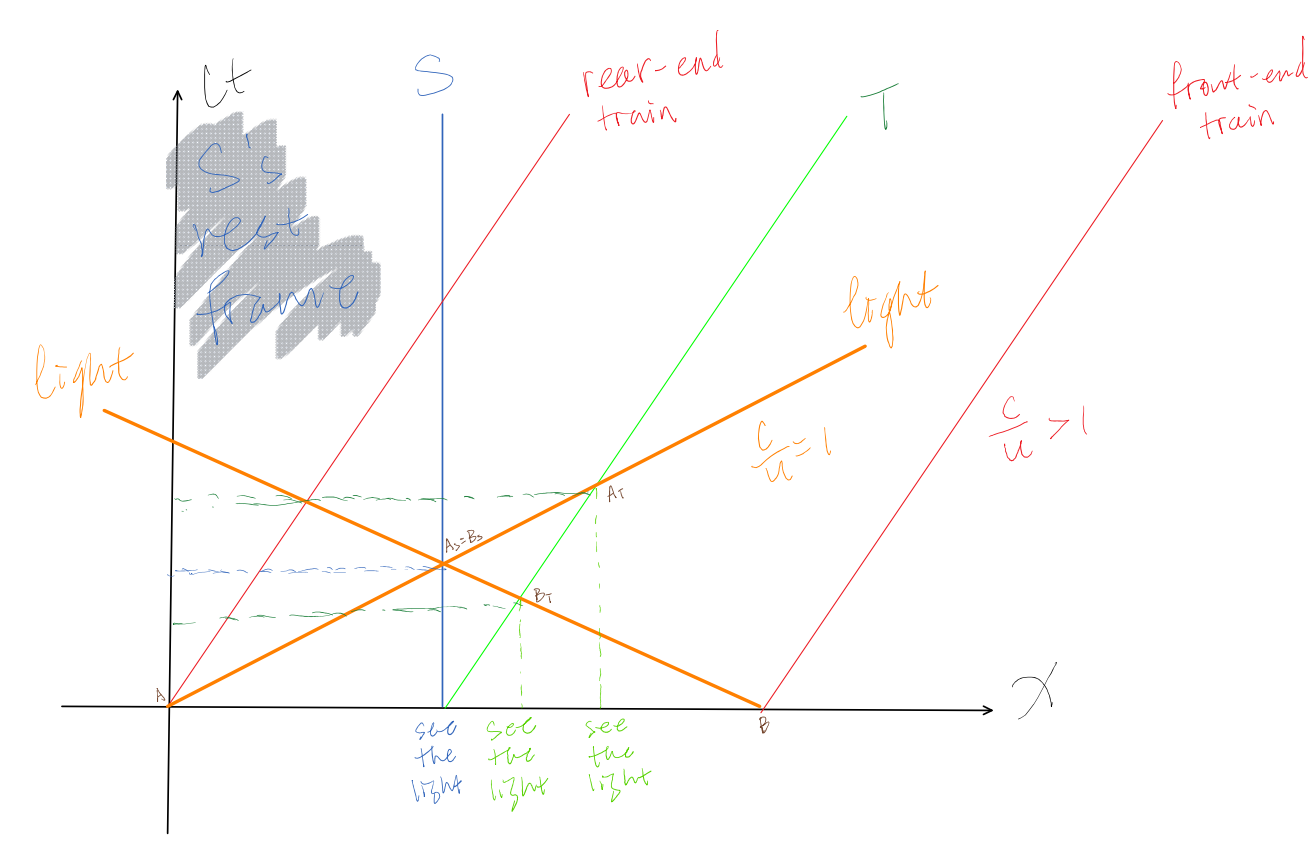 Ct
S
rear-end
train
T
front-end
train
S's
rest
frame
light
light
c/u = 1
c/u > 1
A_T
A_S=B_S
B_T
A
B
X
see
the
light
see
the
light
see
the
light